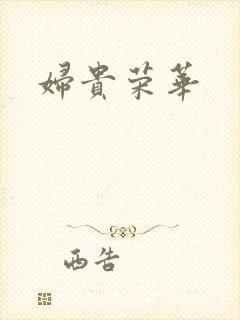 婦貴荣華
西告